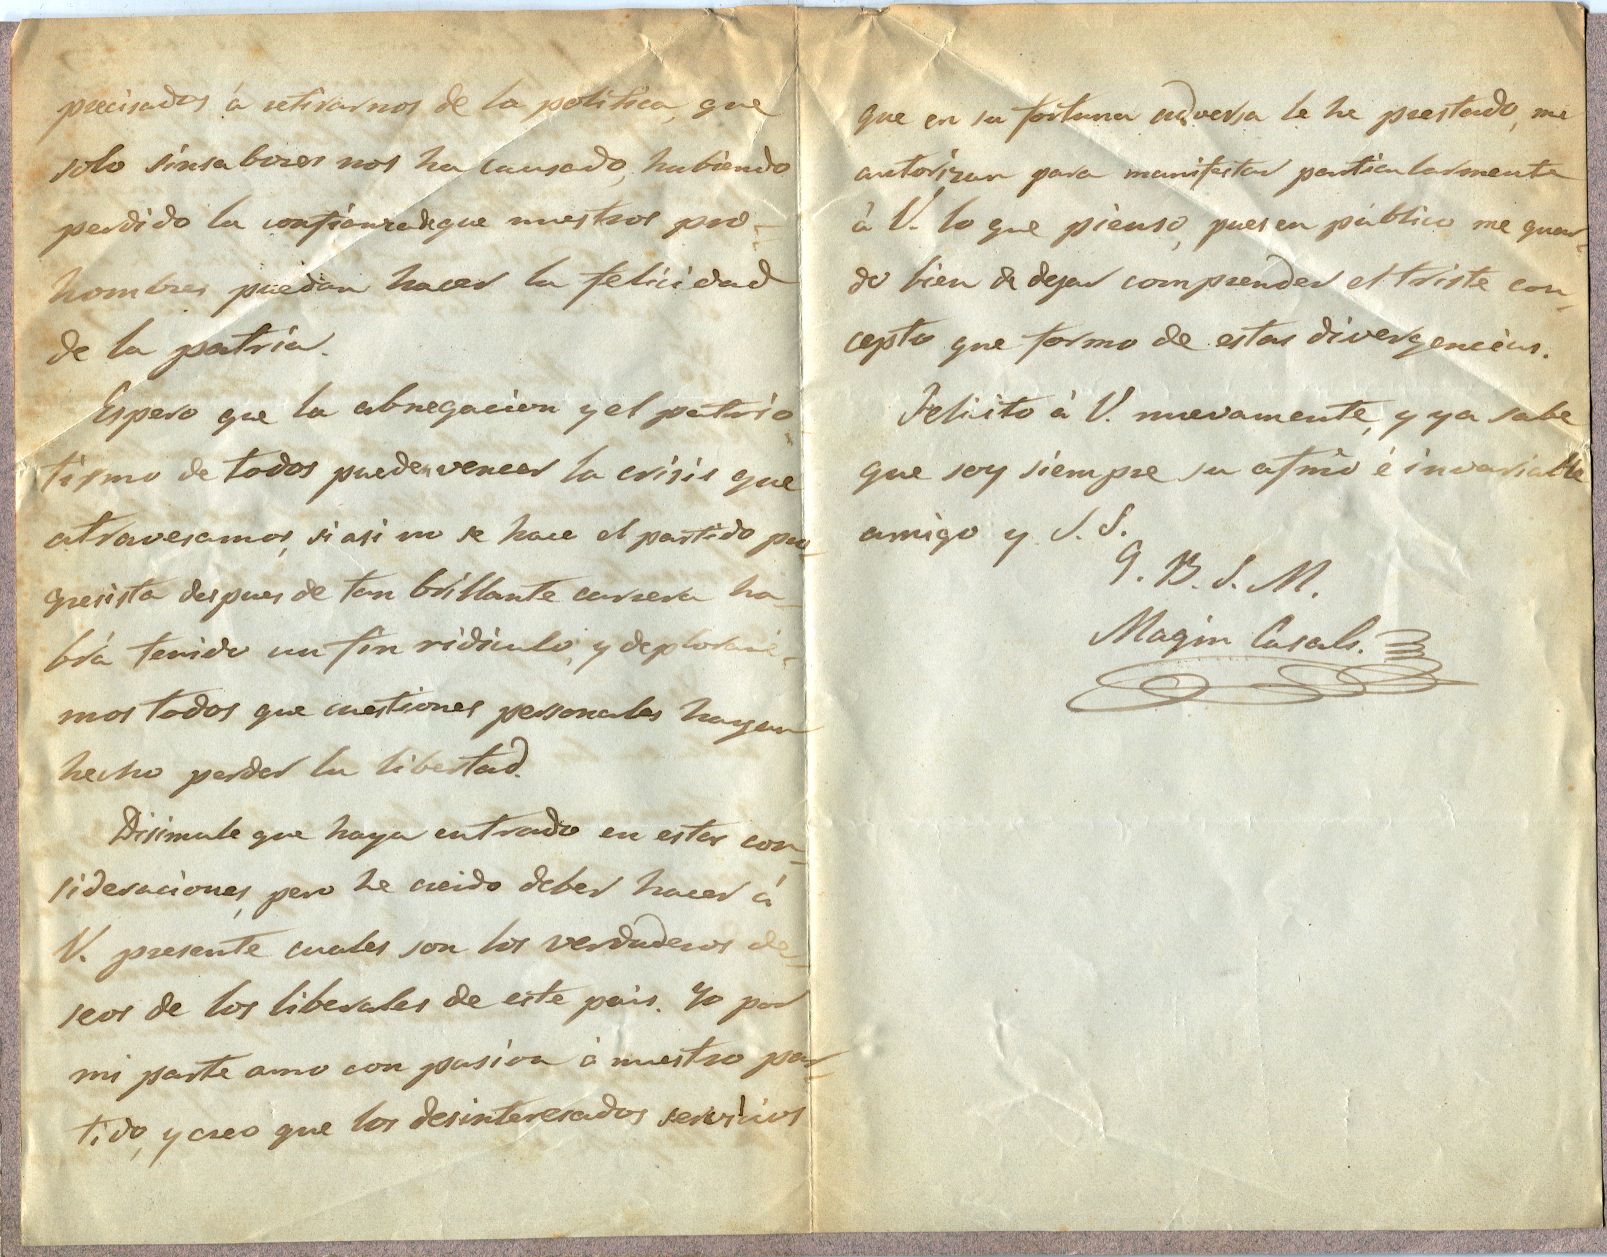 precisados á retirarnos de la politica, que
solo sinsabores nos ha causado, habiendo
perdido la confianza de que nuestros pro-
hombres puedan hacer la felicidad
de la patria.
Espero que la abnegacion y el patrio
tismo de todos pueden vencer la crisis que
atravesamos, si asi no se hace el partido pro-
gresista despues de tan brillante carrera ha-
brá tenido un fin ridiculo, y deplorare-
mos todos que cuestiones personales hayan
hecho perder la libertad.
Disimule que haya entrado en estas con-
sideraciones, pero he creido deber hacer á
V. presente cuales son los verdaderos de-
seos de los liberales de este pais. Yo por
mi parte amo con pasion á nuestro par-
tido, y creo que los desinteresados servicios
que en su fortuna adversa le he prestado, me
autorizan para manifestar particularmente
á V. lo que pienso, pues en público me guar-
do bien de dejar comprender el triste con-
cepto que formo de estas divergencias.
Felicito á V. nuevamente, y ya sabe
que soy siempre su afmo é invariable
amigo y S. S.
Q. B. S. M.
Magin Casals.